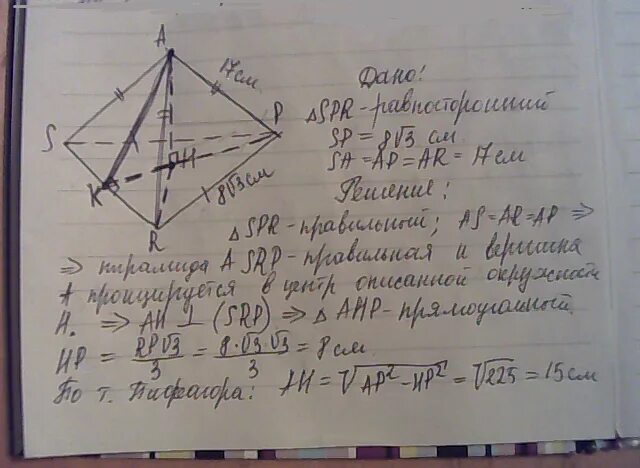 A
17см
S
P
H
K
8√3 см
R
Дано:
△SPR - равносторонний
SP = 8√3 см
SA = AP = AR = 17 см
Решение:
△SPR - правильный; AS = AR = AP ⇒
⇒ пирамида ASRP - правильная и вершина
A проицируется в центр описанной окружности
H. ⇒ AH ⊥ (SRP) ⇒ △AHP - прямоугольный.
HP = RP√3/3 = 8·√3√3/3 = 8 см
По т. Пифагора: AH = √AP² - HP² = √225 = 15 см